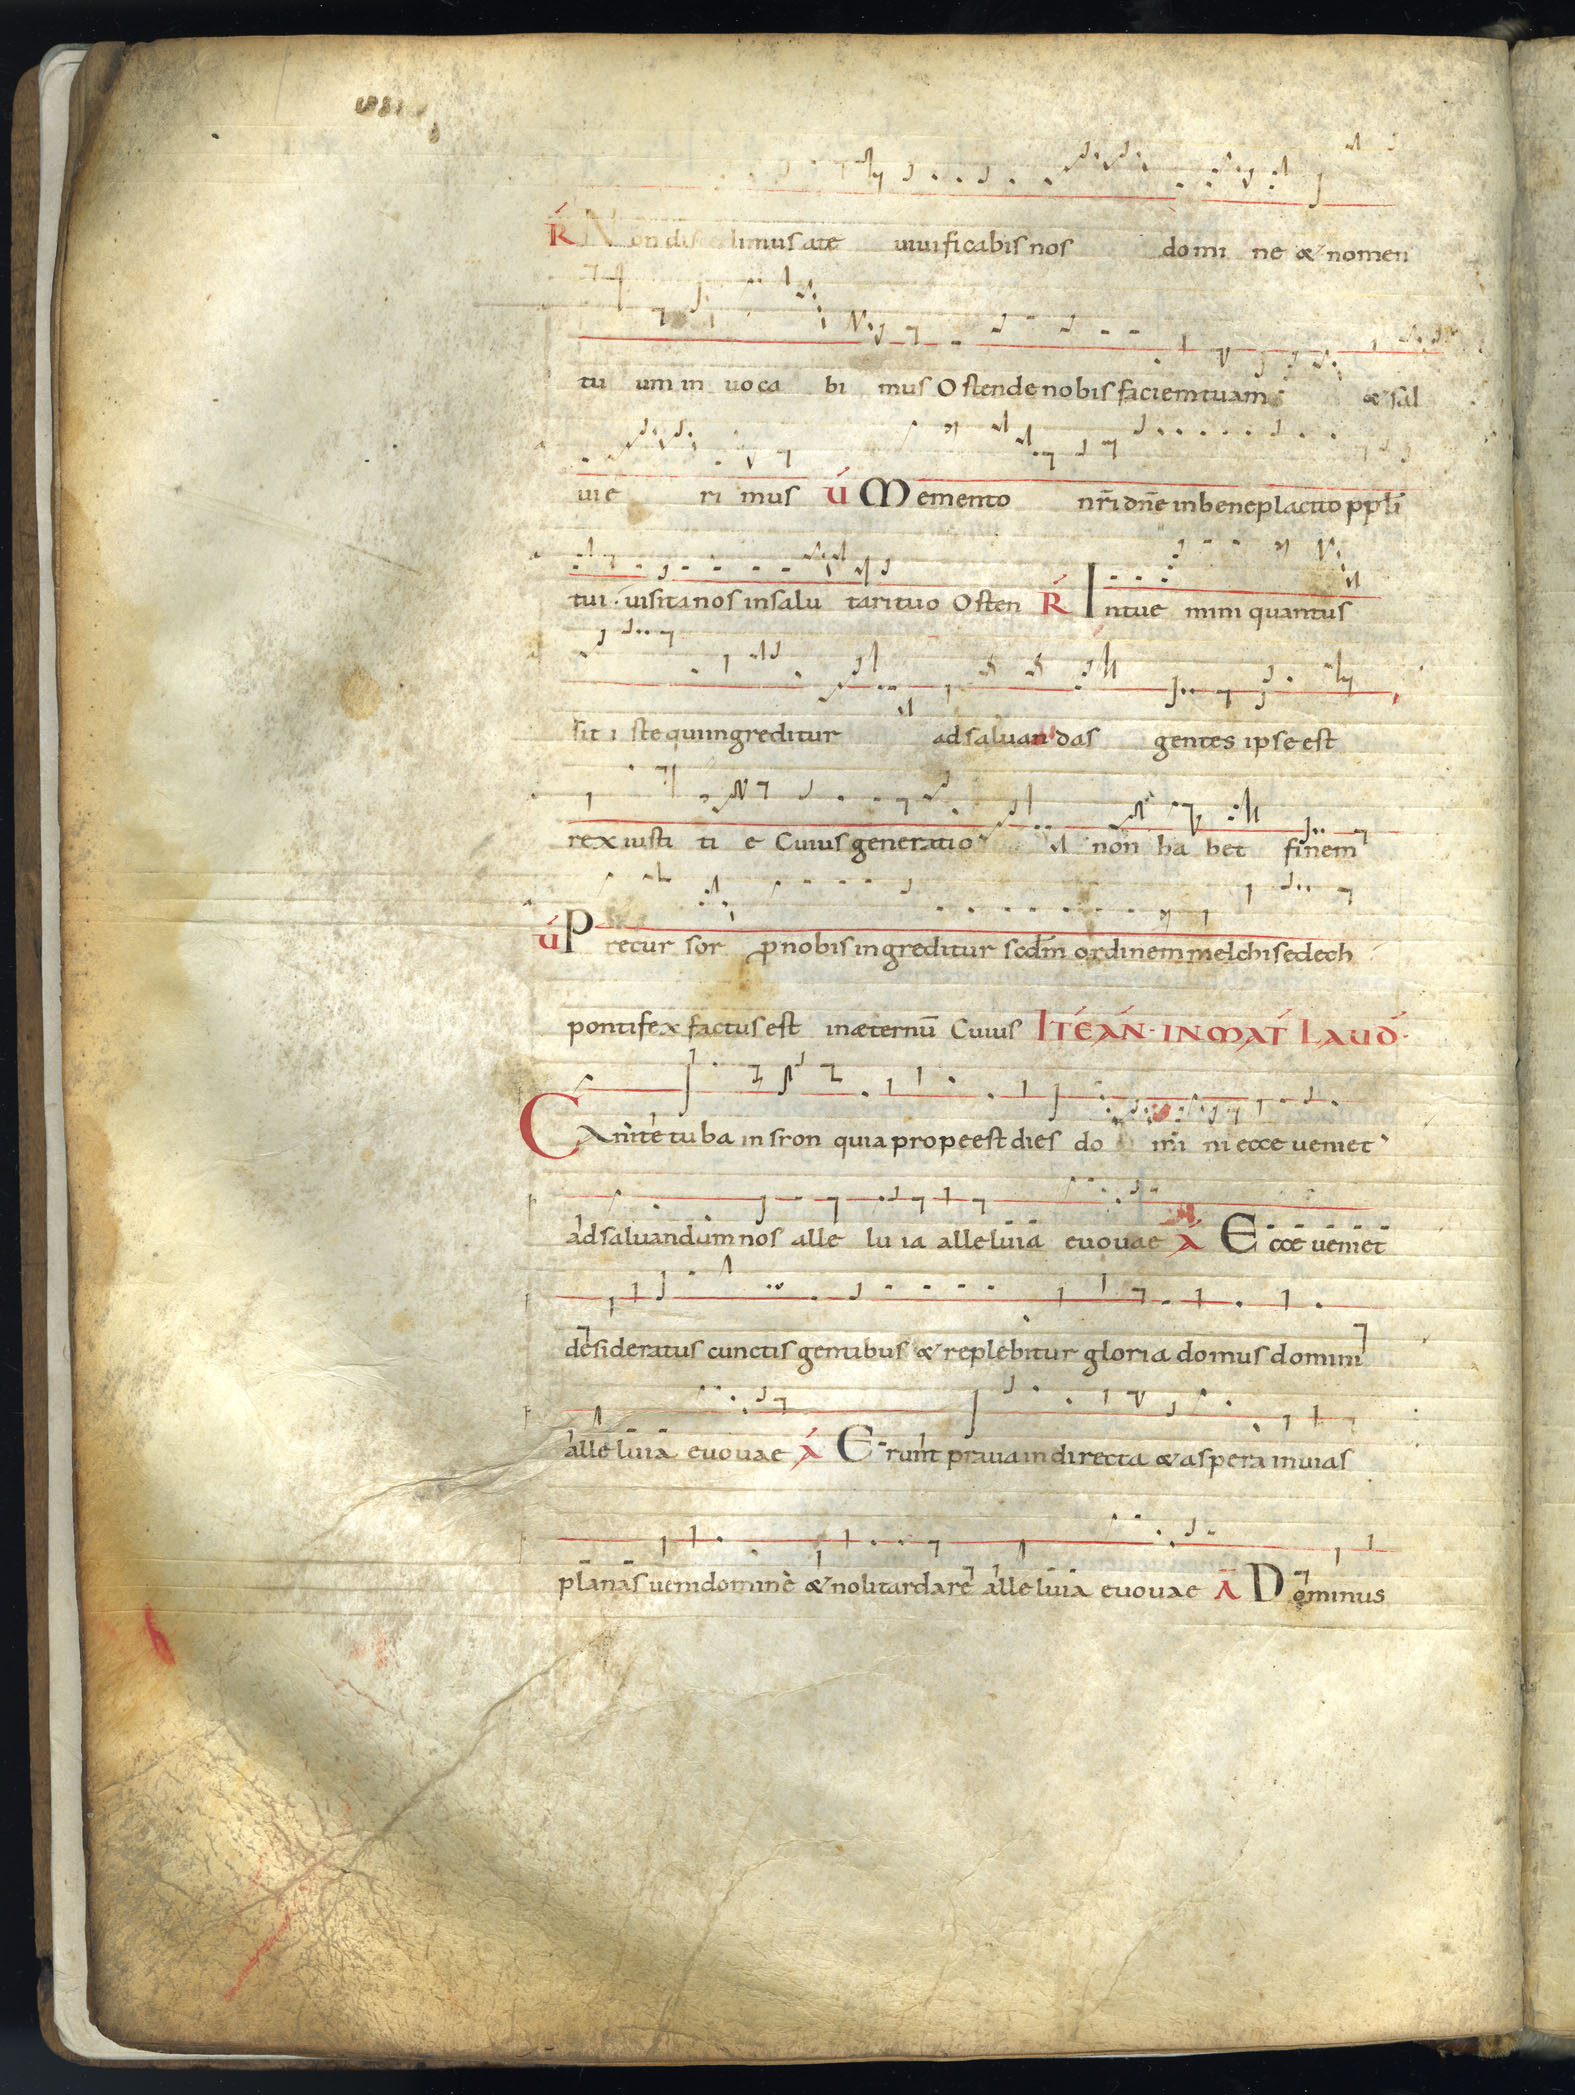 R Non discedimus a te uiuificabis nos domi ne & nomen
tu um in uoca bi mus Ostende nobis faciem tuam & sal
uie ri mus V Memento nr̄i dn̄e in beneplacito ppl̄i
tui · uisita nos in salu tari tuo Osten R Intue mini quantus
sit i ste qui ingreditur ad saluan das gentes ipse est
rex iusti ti e Cuius generatio non ha bet finem
V Precur sor ꝓ nobis ingreditur scdm̄ ordinem melchisedech
pontifex factus est in æternū Cuius ITE AN · IN MAT LAUD ·
Canite tuba in sion quia prope est dies do mi ni ecce ueniet
ad saluandum nos alle lu ia alleluia euouae A Ecce ueniet
desideratus cunctis gentibus & replebitur gloria domus domini
alleluia euouae A Erunt praua in directa & aspera in uias
planas ueni domine & noli tardare alleluia euouae A Dominus